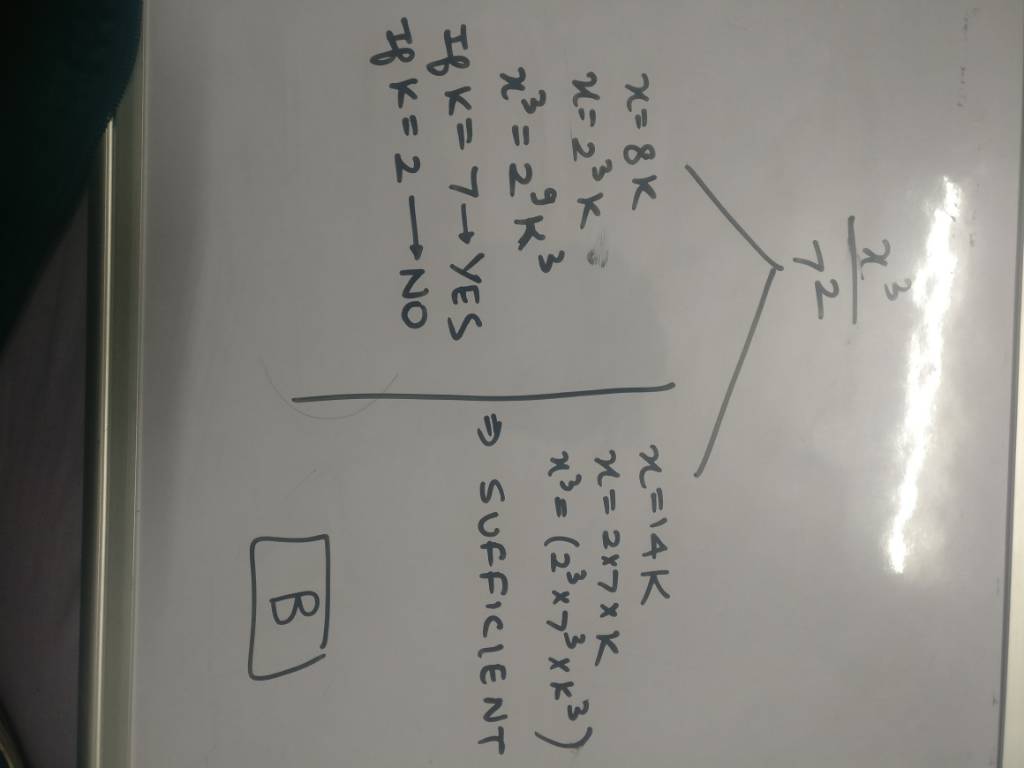 x³
7²
x = 8K
x = 2³K
x³ = 2⁹K³
If K = 7 → YES
If K = 2 → NO
x = 14K
x = 2×7×K
x³ = (2³×7³×K³)
⇒ SUFFICIENT
B